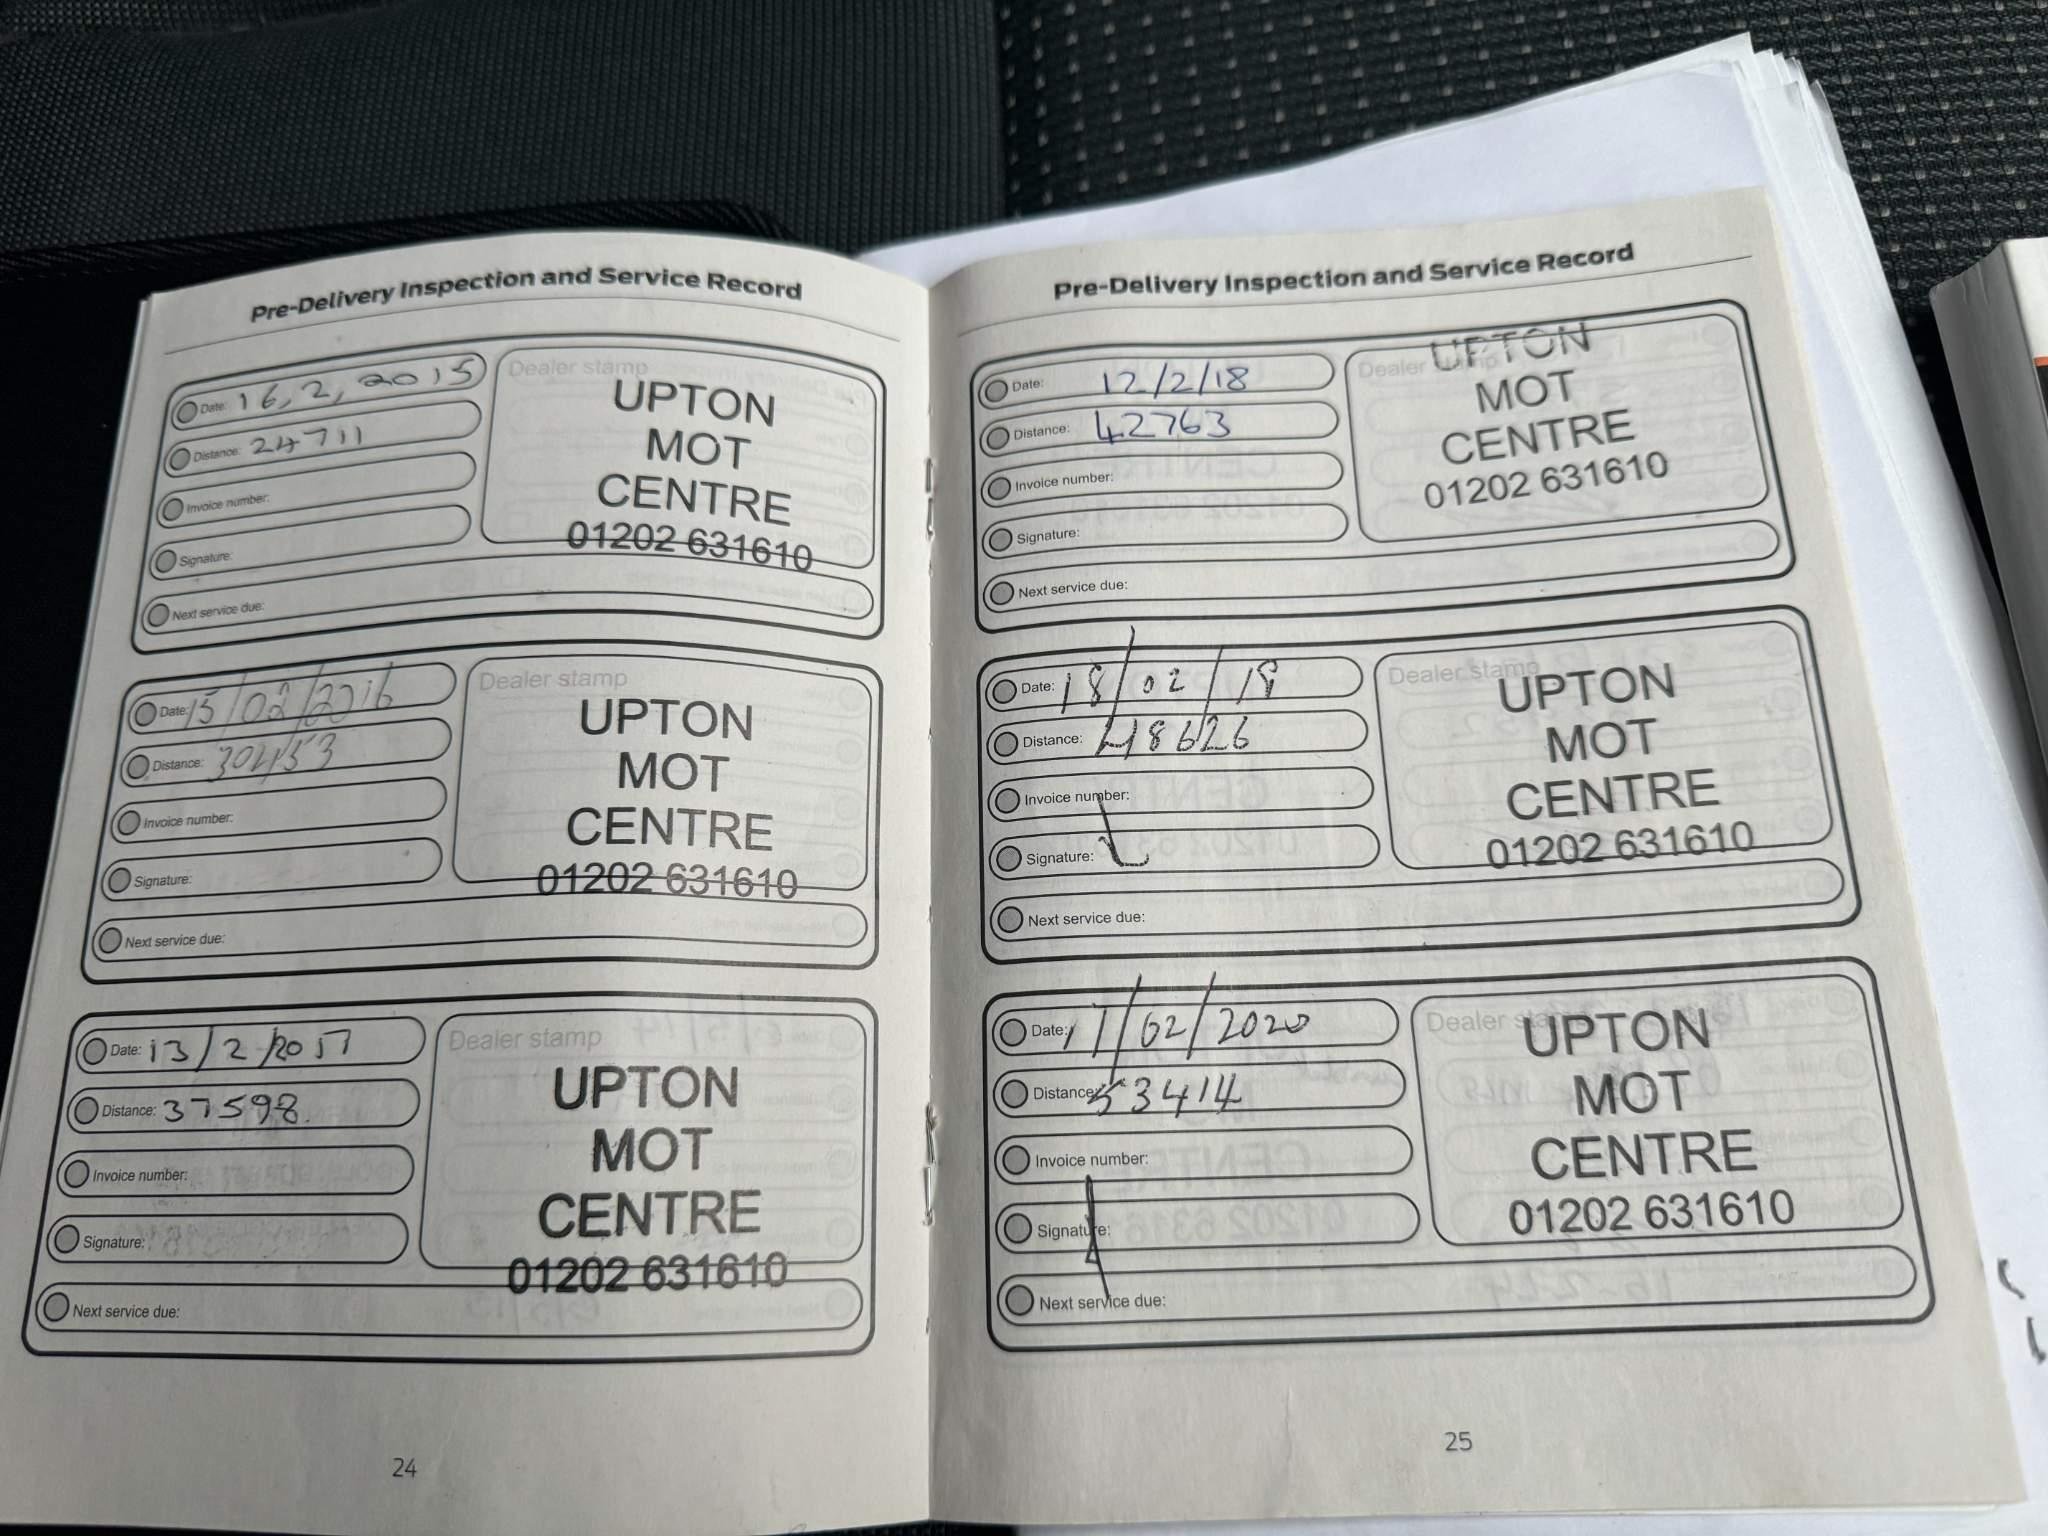 Pre-Delivery Inspection and Service Record
Date: 16,2,2015
Distance: 24711
Invoice number:
Signature:
Next service due:
Dealer stamp
UPTON
MOT
CENTRE
01202 631610
Date: 15/02/2016
Distance: 30453
Invoice number:
Signature:
Next service due:
Dealer stamp
UPTON
MOT
CENTRE
01202 631610
Date: 13/2/2017
Distance: 37598
Invoice number:
Signature:
Next service due:
Dealer stamp
UPTON
MOT
CENTRE
01202 631610
24
Pre-Delivery Inspection and Service Record
Date: 12/2/18
Distance: 42763
Invoice number:
Signature:
Next service due:
Dealer stamp
UPTON
MOT
CENTRE
01202 631610
Date: 18/02/19
Distance: 48626
Invoice number:
Signature:
Next service due:
Dealer stamp
UPTON
MOT
CENTRE
01202 631610
Date: 11/02/2020
Distance: 53414
Invoice number:
Signature:
Next service due:
Dealer stamp
UPTON
MOT
CENTRE
01202 631610
25